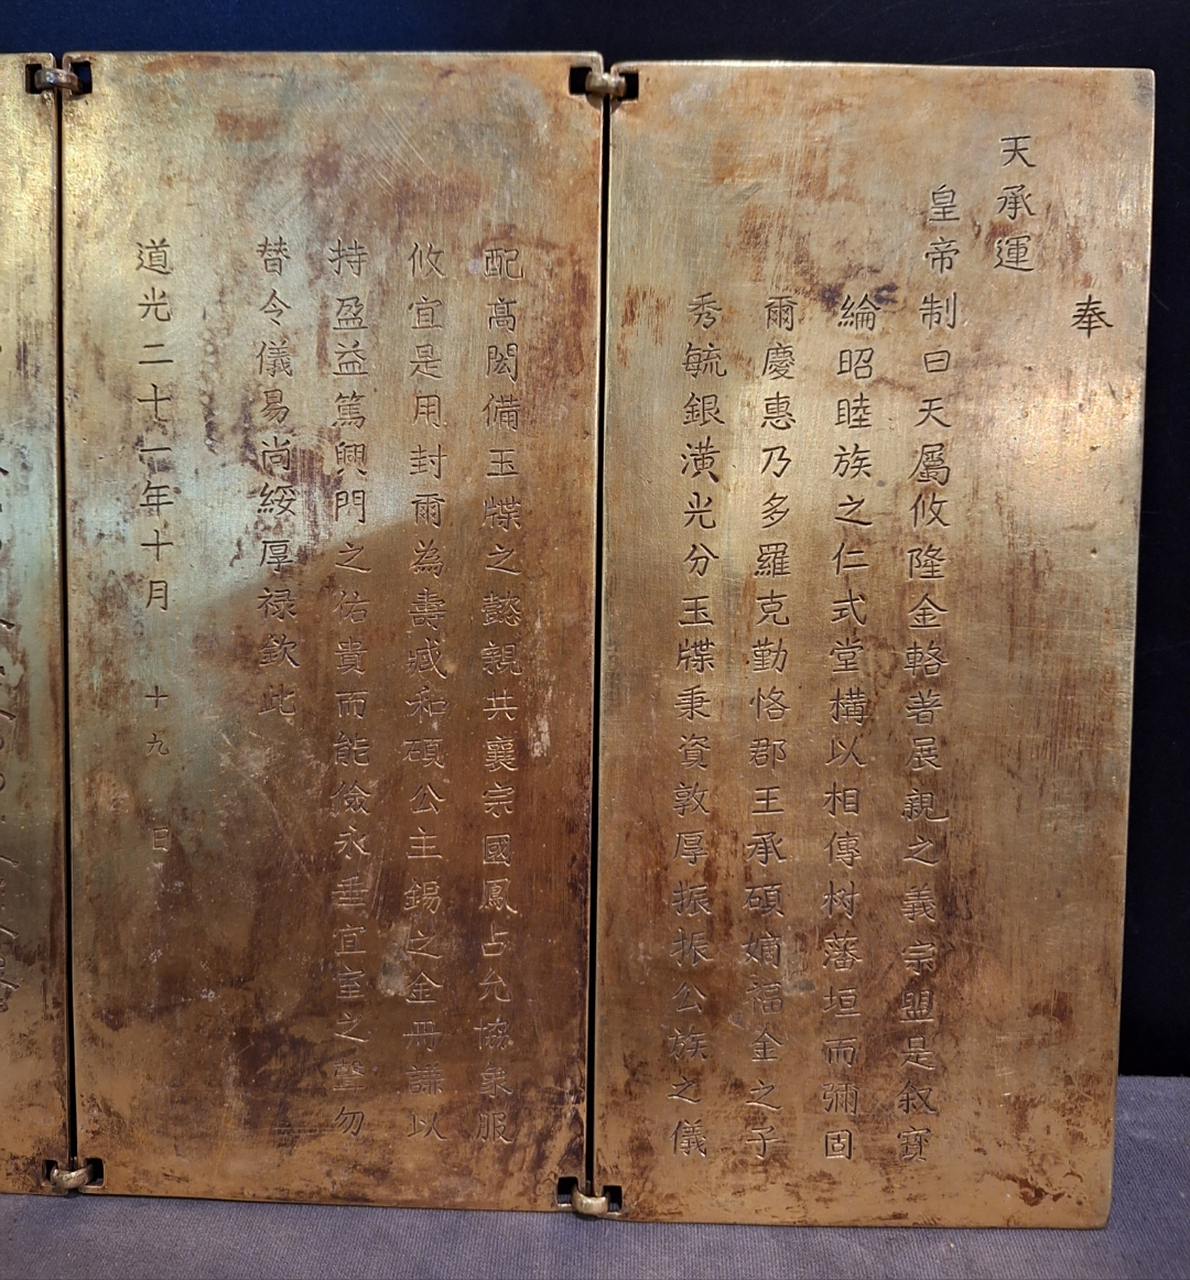 奉
天承運
皇帝制曰天屬攸隆金輅著展親之義宗盟是叙寳
綸昭睦族之仁式堂構以相傳树藩垣而彌固
爾慶惠乃多羅克勤恪郡王承碩嫡福金之子
秀毓銀潢光分玉牒秉資敦厚振振公族之儀
配髙閎備玉牒之懿親共襄宗國鳳占允協象服
攸宜是用封爾為壽臧和碩公主錫之金冊謙以
持盈益篤興門之佑貴而能儉永垂宜室之聲勿
替令儀易尚綏厚禄欽此
道光二十一年十月十九日